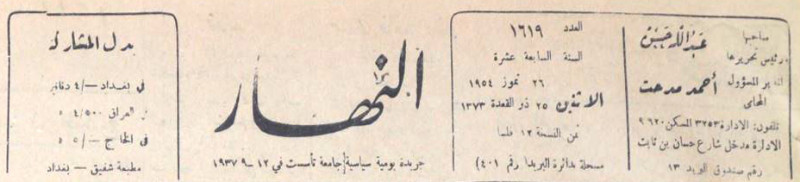 صاحبها
عبد الله حسن
ورئيس تحريرها
المدير المسؤول
أحمد مدحت
المحامي
تلفون: الادارة ٣٢٥٣ المسكن ٩٦٢٠
الادارة مدخل شارع حسان بن ثابت
رقم صندوق البريد ١٣
العدد ١٦١٩
السنة السابعة عشرة
٢٦ تموز ١٩٥٤
الاثنين ٢٥ ذو القعدة ١٣٧٣
ثمن النسخة ١٢ فلسا
مسجلة بدائرة البريد (رقم ٤٠١)
النهار
جريدة يومية سياسية جامعة تأسست في ١٢-٩-١٩٣٧
بدل المشاركة
في بغداد -/٤ دنانير
العراق ٤/٥٠٠
في الخارج -/٥
مطبعة شفيق - بغداد